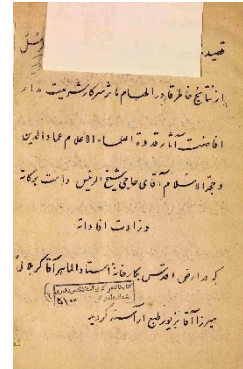 قصیده
از نتایج خاطر قادر الهام مآثر سرکار شریعت مدار
افاضت آثار قدوة العلماء الاعلام عماد الدین
و حجة الاسلام آقای حاجی شیخ الرئیس دامت برکاته
و زادت افاداته
که در ارض اقدس بکارخانه استاد الماهر آقا کربلائی
میرزا آقا بزیور طبع آراسته گردید